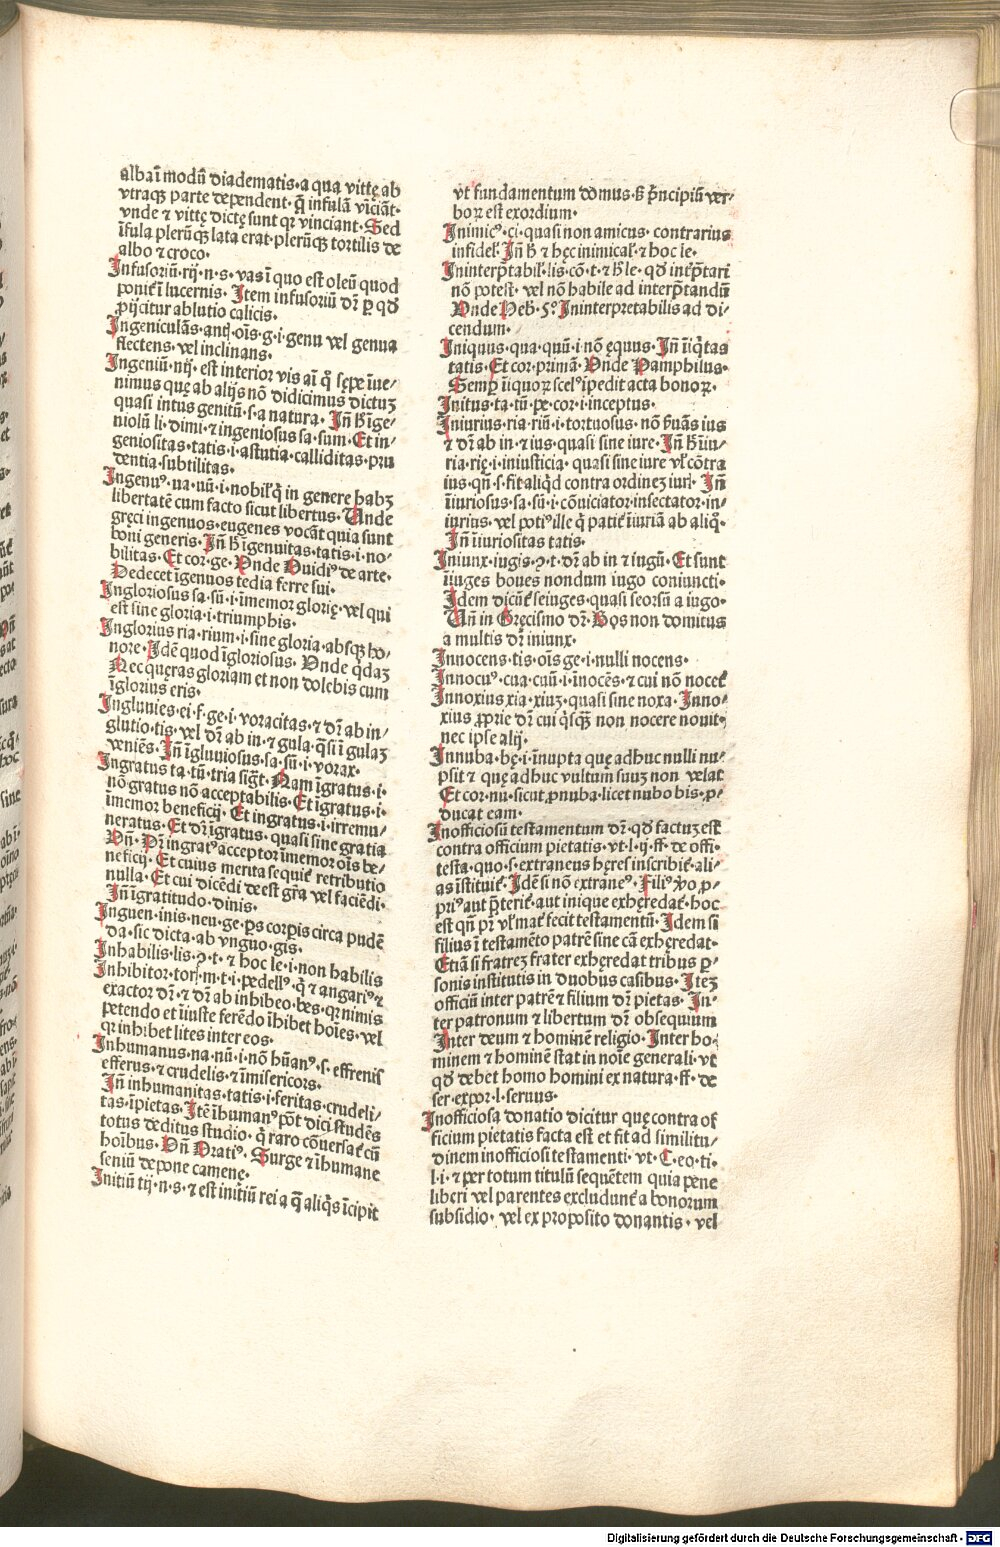 alba ī modū diadematis·a qua vittę ab
vtraqꝫ parte dependent·q̄ infulā vīciāt·
vnde ⁊ vittę dictę sunt qꝛ vinciant·Sed
īfula plerūqꝫ lata erat·plerūqꝫ tortilis de
albo ⁊ croco·
Infusoriū·rij·n·s·vas ī quo est oleū quod
poniť ī lucernis· Item infusoriū dr̄ ꝑ qd̄
ꝓijcitur ablutio calicis·
Ingeniculās·antꝭ·oīs·g·i·genu vel genua
flectens·vel inclinans·
Ingeniū·nij·est interior vis aī q̄ sępe īue/
nimus quę ab alijs nō didicimus dictuꝫ
quasi intus genitū·s·a natura· Iñ h̄ īge/
niolū li·dimi·⁊ ingeniosus sa·sum·Et in/
geniositas·tatis·i·astutia·calliditas·pru
dentia·subtilitas·
Ingenuꝰ·ua·uū·i·nobil̕ q̄ in genere habꝫ
libertatē cum facto sicut libertus·Unde
gręci ingenuos·eugenes vocāt quia sunt
boni generis·Iñ h̄ īgenuitas·tatis·i·no·
bilitas·Et cor·ge·Vnde Ouidiꝰ de arte·
Dedecet īgenuos tedia ferre sui·
Ingloriosus sa·sū·i·īmemor glorię·vel qui
est sine gloria·i·triumphis·
Inglorius ria·rium·i·sine gloria·absqꝫ ho·
nore·Idē quod īgloriosus· Vnde q̇daꝫ
Nec quęras gloriam et non dolebis cum
īglorius eris·
Ingluuies·ei·f·ge·i·voracitas·⁊ dr̄ ab in/
glutio·tis·vel dr̄ ab in·⁊ gula·q̄si ī gulaꝫ
veniēs·Iñ īgluuiosus·sa·sū·i·vorax·
Ingratus ta·tū·tria sigt̄·Nam īgratus·i·
nō gratus nō acceptabilis·Et īgratus·i·
īmemor beneficij·Et ingratus·i·irremu/
neratus·Et dr̄ īgratus·quasi sine gratia
Vñ·Pr̄ ingratꝰ acceptor īmemor oīs be/
neficij·Et cuius merita sequiť retributio
nulla·Et cui dicēdi deest gr̄a vel faciēdi·
Iñ īgratitudo·dinis·
Inguen·inis·neu·ge·ꝑs corꝑis circa pudē
da·sic dicta·ab vnguo·gis·
Inhabilis·lis·ꝯ·t·⁊ hoc le·i·non habilis
Inhibitor·torꝭ·m·t·i·pedellꝰ·q̇ ⁊ angariꝰ ⁊
exactor dr̄·⁊ dr̄ ab inhibeo·bes·qꝛ nimis
petendo et īiuste ferēdo īhibet hoīes·vel
qꝛ inhibet lites inter eos·
Inhumanus·na·nū·i·nō hūanꝰ·s·effrenis
efferus·⁊ crudelis·⁊ īmisericors·
Iñ inhumanitas·tatis·i·feritas·crudeli/
tas·īpietas·Itē īhumanꝰ pōt dici studēs
totus deditus studio·q̇ raro cōuersať cū
hoībus·Vñ Oratiꝰ·Surge ⁊ īhumane
seniū depone camene·
Initiū tij·n·s·⁊ est initiū rei a q̄ aliq̇s īcipit
vt fundamentum domus·s̄ pr̄ncipiū ver·
boꝝ est exordium·
Inimicꝰ·ci·quasi non amicus·contrarius
infidel̕·Iñ h̄ ⁊ hęc inimical̕·⁊ hoc le·
Ininterp̄tabil̕·lis·cō·t·⁊ h̄ le·qd̄ interp̄tari
nō potest·vel nō habile ad interp̄tandū
Vnde Heb·5º·Ininterpretabilis ad di/
cendum·
Iniquus·qua·quū·i·nō ęquus·Iñ īiq̇tas
tatis·Et cor·primā·Vnde Pamphilus·
Semꝑ īiquoꝝ scelꝰ īpedit acta bonoꝝ·
Initus·ta·tū·pe·cor·i·inceptus·
Iniurius·ria·riū·i·tortuosus·nō huās ius
⁊ dr̄ ab in·⁊ ius·quasi sine iure·Iñ h̄ īiu/
ria·rię·i·iniusticia·quasi sine iure vl̕ cōtra
ius·qñ·s·fit aliq̇d contra ordineꝫ iurꝭ·Iñ
īiuriosus·sa·sū·i·cōuiciator·insectator·in/
iurius·vel potiꝰ ille q̇ patiť īiuriā ab aliq̊·
Iñ īiuriositas tatis·
Iniunx·iugis·ꝯ·t·dr̄ ab in ⁊ iugū·Et sunt
iniuges boues nondum iugo coniuncti·
Idem dicūť seiuges·quasi seorsū a iugo·
Vñ in Gręcismo dr̄·Bos non domitus
a multis dr̄ iniunx·
Innocens·tis·oīs ge·i·nulli nocens·
Innocuꝰ·cua·cuū·i·inocēs·⁊ cui nō noceť
Innoxius xia·xiuꝫ·quasi sine noxa·Inno·
xius ꝓprie dr̄ cui q̇sq̇ꝫ non nocere nouit·
nec ipse alij·
Innuba·bę·i·īnupta quę adhuc nulli nu·
psit ⁊ quę adhuc vultum suuꝫ non velat
Et cor·nu·sicut ꝓnuba·licet nubo bis·ꝓ·
ducat eam·
Inofficiosū testamentum dr̄·qd̄ factuꝫ est
contra officium pietatis·vt·l·ij·ff·de offi·
testa·quo·s·extraneus hęres inscribiť·ali·
as īstituiť·Idē si nō extraneꝰ·Filiꝰ v̊o ꝓ·
priꝰ aut p̄teriť·aut inique exhęredať·hoc
est qñ pr̄ vl̕ mať fecit testamentū·Idem si
filius ī testamēto patrē sine cā exhęredat·
Etiā si fratreꝫ frater exhęredat tribus ꝑ·
sonis institutis in duobus casibus·Iteꝫ
officiū inter patrē ⁊ filium dr̄ pietas·In·
ter patronum ⁊ libertum dr̄ obsequium
Inter deum ⁊ hominē religio·Inter ho·
minem ⁊ hominē stat in noīe generali·vt
qd̄ debet homo homini ex natura·ff·de
ser·expor·l·seruus·
Inofficiosa donatio dicitur quę contra of
ficium pietatis facta est et fit ad similitu/
dinem inofficiosi testamenti·vt·C·eo·ti·
l·i·⁊ per totum titulū sequētem quia pene
liberi vel parentes excludunť a bonorum
subsidio·vel ex proposito donantis·vel
Digitalisierung gefördert durch die Deutsche Forschungsgemeinschaft - DFG